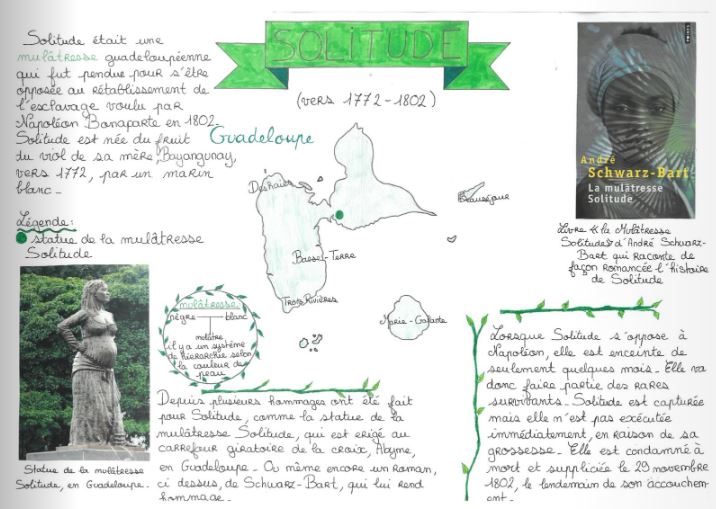 SOLITUDE
(vers 1772-1802)
Solitude était une
mulâtresse guadeloupéenne
qui fut pendue pour s'être
opposée au rétablissement de
l'esclavage voulu par
Napoléon Bonaparte en 1802.
Solitude est née du fruit
du viol de sa mère Bayangunay,
vers 1772, par un marin
blanc.
Légende:
statue de la mulâtresse
Solitude
Statue de la mulâtresse
Solitude, en Guadeloupe.
Guadeloupe
Deshaies
Beauséjour
Basse-Terre
Trois Rivières
Marie-Galante
mulâtresse
nègre blanc
mulâtre
il y a un système
de hierarchie selon
la couleur de
peau
Depuis plusieurs hommages ont été fait
pour Solitude, comme la statue de la
mulâtresse Solitude, qui est erigé au
carrefour giratoire de la croix, Abyme,
en Guadeloupe. Ou même encore un roman,
ci dessus, de Schwarz-Bart, qui lui rend
hommage.
André
Schwarz-Bart
La mulâtresse
Solitude
Livre « la Mulâtresse
Solitude » d'André Schwarz-
Bart qui raconte de
façon romancée l'histoire
de Solitude
Lorsque Solitude s'oppose à
Napoléon, elle est enceinte de
seulement quelques mois. Elle va
donc faire partie des rares
survivants. Solitude est capturée
mais elle n'est pas exécutée
immédiatement, en raison de sa
grossesse. Elle est condamné à
mort et suppliciée le 29 novembre
1802, le lendemain de son accouchem-
ent.